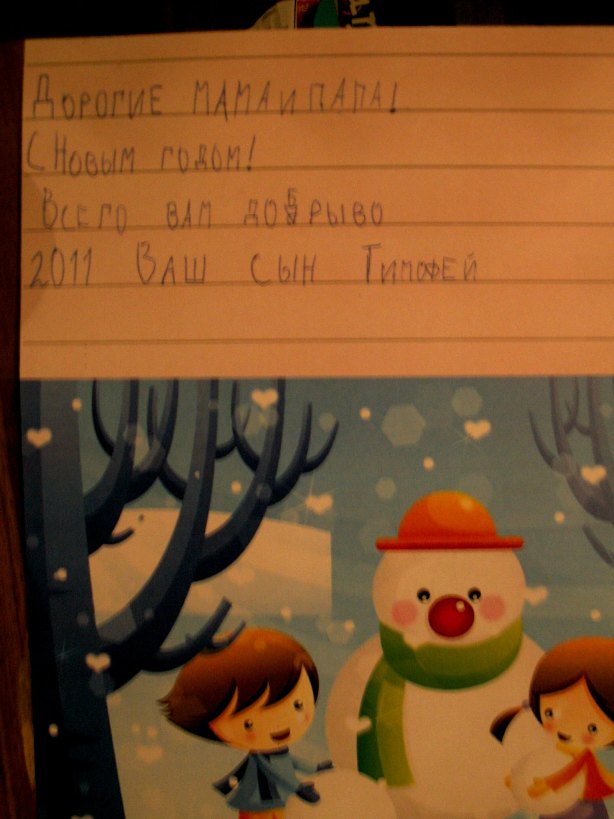 Дорогие мама и папа!
С Новым годом!
Всего вам добрыво
2011 Ваш сын Тимофей